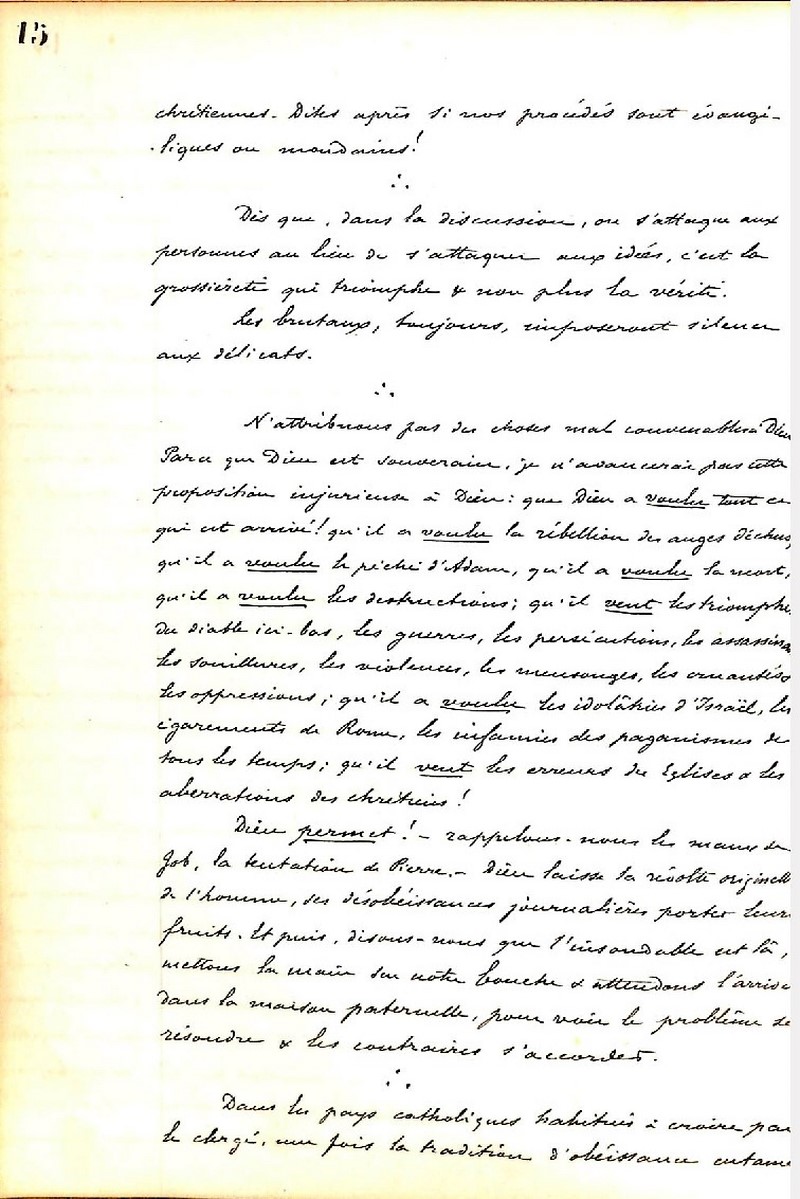 15
chrétiennes. Dites après si nos procédés sont évangé-
liques ou mondains!
∴
Dès que, dans la discussion, on s'attaque aux
personnes au lieu de s'attaquer aux idées, c'est la
grossièreté qui triomphe & non plus la vérité.
Les brutaux, toujours, imposeront silence
aux délicats.
∴
N'attribuons pas des choses mal convenables à Dieu
Parce que Dieu est souverain, je n'avancerai pas cette
proposition injurieuse à Dieu: que Dieu a voulu tout ce
qui est arrivé! qu'il a voulu la rébellion des anges déchus,
qu'il a voulu le péché d'Adam, qu'il a voulu la mort,
qu'il a voulu les destructions; qu'il veut les triomphes
du diable ici-bas, les guerres, les persécutions, les assassina
les souillures, les violences, les mensonges, les cruautés
les oppressions; qu'il a voulu les idolâtries d'Israël, les
égarements de Rome, les infamies des paganismes de
tous les temps; qu'il veut les erreurs des Eglises & les
aberrations des chrétiens!
Dieu permet! - rappelons-nous les maux de
Job, la tentation de Pierre. - Dieu laisse la révolte originell
de l'homme, ses désobéissances journalières porter leurs
fruits. Et puis, disons-nous que l'insondable est là,
mettons la main sur notre bouche & attendons l'arrivé
dans la maison paternelle, pour voir le problème se
résoudre & les contraires s'accorder.
∴
Dans les pays catholiques habitués à croire par
le clergé, une fois la tradition d'obéissance entamé